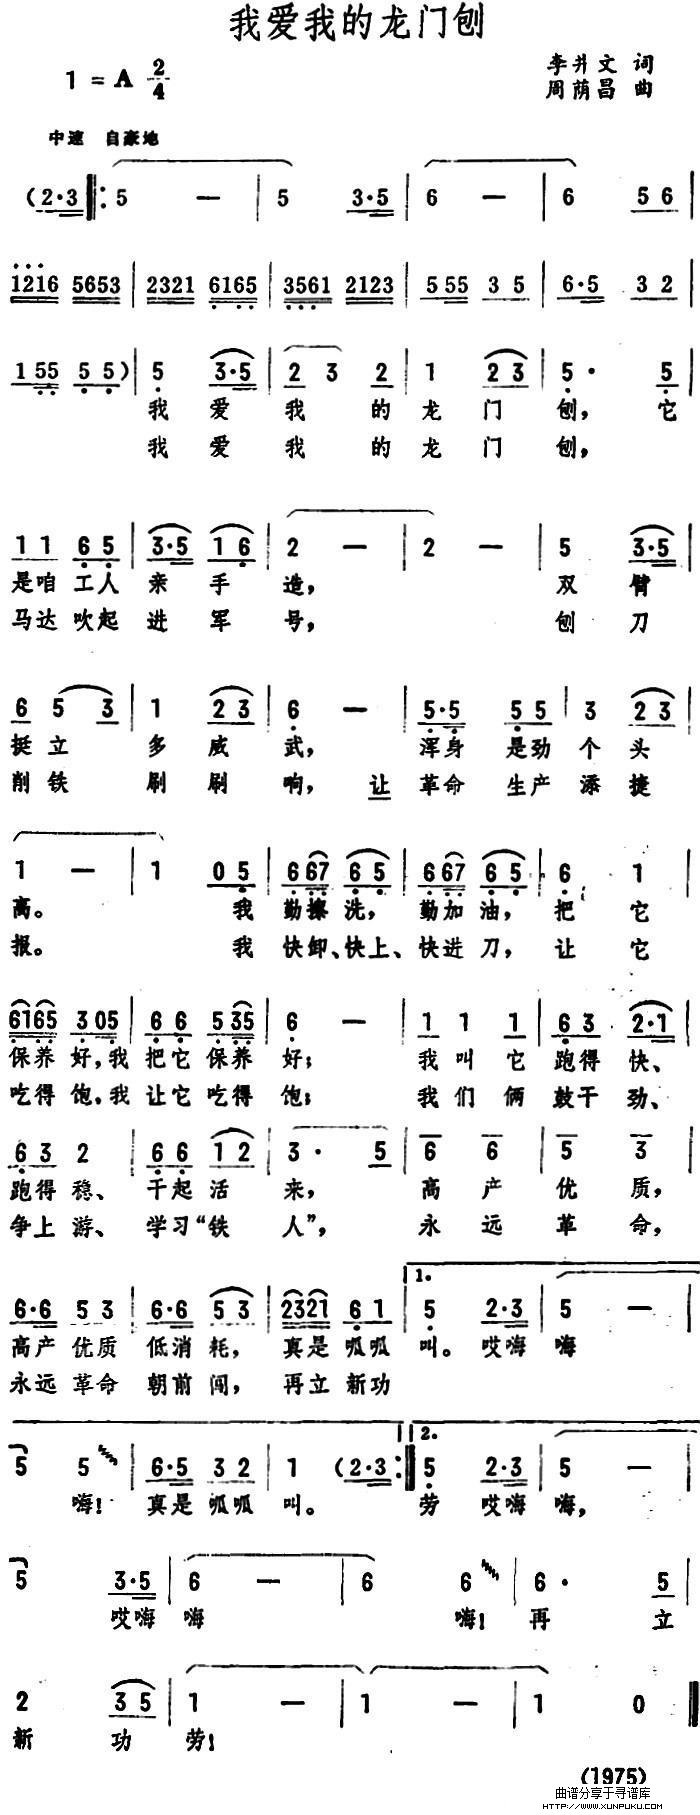 我爱我的龙门刨
1=A 2/4
李井文 词
周荫昌 曲
中速 自豪地
(2·3 5 — 5 3·5 6 — 6 5 6
1216 5653 2321 6165 3561 2123 5 55 3 5 6·5 3 2
1 55 5 5) 5 3·5 2 3 2 1 2 3 5· 5
我 爱 我 的 龙 门 刨, 它
我 爱 我 的 龙 门 刨,
1 1 6 5 3·5 1 6 2 — 2 — 5 3·5
是咱 工人 亲 手 造, 双 臂
马达 吹起 进 军 号, 刨 刀
6 5 3 1 2 3 6 — 5·5 5 5 3 2 3
挺 立 多 威 武, 浑身 是劲 个 头
削 铁 刷 刷 响, 让 革命 生产 添 捷
1 — 1 0 5 6 67 6 5 6 67 6 5 6 1
高。 我 勤擦 洗, 勤加 油, 把 它
报。 我 快卸、快上、快进 刀, 让 它
6165 3 05 6 6 5 35 6 — 1 1 1 6 3 2·1
保养 好,我 把它 保养 好; 我 叫 它 跑得 快、
吃得 饱。我 让它 吃得 饱; 我 们 俩 鼓干 劲、
6 3 2 6 6 1 2 3· 5 6 6 5 3
跑得 稳、 干起 活 来, 高 产 优 质,
争上 游、 学习“铁 人”, 永 远 革 命,
6·6 5 3 6·6 5 3 2321 6 1 1. 5 2·3 5 —
高产 优质 低消 耗, 真是 呱呱 叫。 哎嗨 嗨
永远 革命 朝前 闯, 再立 新功
5 5 6·5 3 2 1 (2·3 2. 5 2·3 5 —
嗨! 真是 呱呱 叫。 劳 哎嗨 嗨,
5 3·5 6 — 6 6 6· 5
哎嗨 嗨 嗨! 再 立
2 3 5 1 — 1 — 1 0
新 功 劳!
(1975)
曲谱分享于寻谱库
HTTP://WWW.XUNPUKU.COM